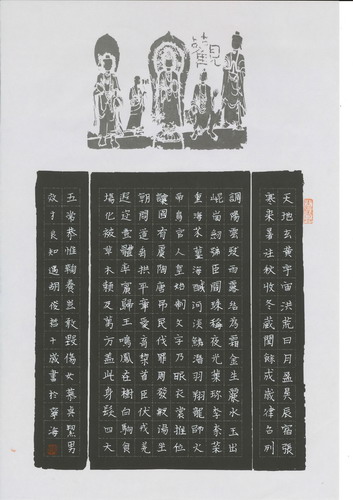 觀
天地玄黃宇宙洪荒日月盈昃辰宿張
寒來暑往秋收冬藏閏餘成歲律召列
調陽雲致雨露結為霜金生麗水玉出
崐崗劍號巨闕珠稱夜光菓珍李柰菜
重海芥薑海鹹河淡鱗潛羽翔龍師火
帝鳥官人皇始制文字乃服衣裳推位
讓國有虞陶唐弔民伐罪周發殷湯坐
朝問道垂拱平章愛育黎首臣伏戎羌
遐迩壹體率賓歸王鳴鳳在樹白駒食
場化被草木賴及萬方蓋此身髮四大
五常恭惟鞠養豈敢毀傷女慕貞潔男
效才良知過胡俊十歲書於寧海